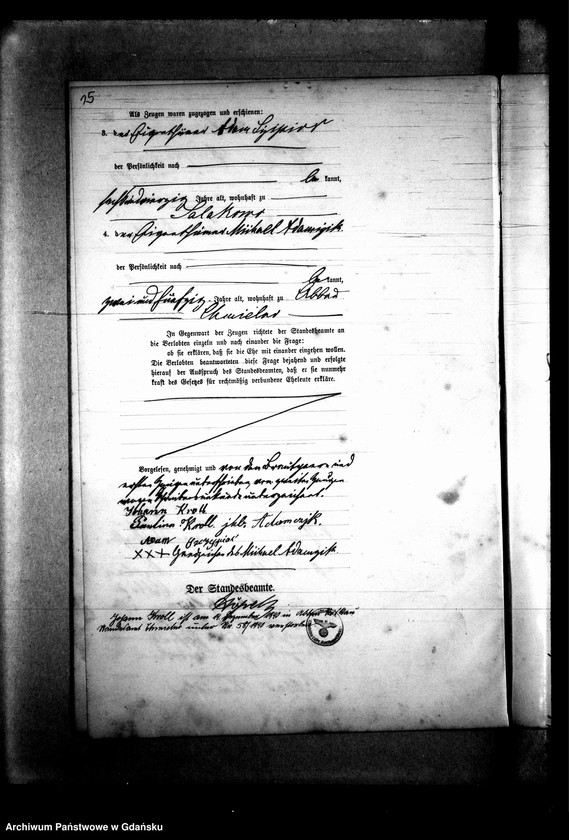 25
Als Zeugen waren zugezogen und erschienen:
3. der Eigenthümer Adam
der Persönlichkeit nach
be kannt,
sechsundvierzig Jahre alt, wohnhaft zu
Salakowo
4. der Eigenthümer Michael Adamczik
der Persönlichkeit nach
be kannt,
zweiundfünfzig Jahre alt, wohnhaft zu Abbau
Chmielno
In Gegenwart der Zeugen richtete der Standesbeamte an
die Verlobten einzeln und nach einander die Frage:
ob sie erklären, daß sie die Ehe mit einander eingehen wollen.
Die Verlobten beantworteten diese Frage bejahend und erfolgte
hierauf der Ausspruch des Standesbeamten, daß er sie nunmehr
kraft des Gesetzes für rechtmäßig verbundene Eheleute erkläre.
Vorgelesen, genehmigt und von den Brautpaar und
ersten Zeugen unterschrieben von zweiten Zeugen
wegen Schreibensunkunde unterzeichnet.
Johann Kroll
Paulina Kroll geb. Adamczik.
Adam
XXX Handzeichen des Michael Adamczik.
Der Standesbeamte.
Johann Kroll ist am Dezember 1941 in
Standesamt unter Nr. verstorben
Archiwum Państwowe w Gdańsku